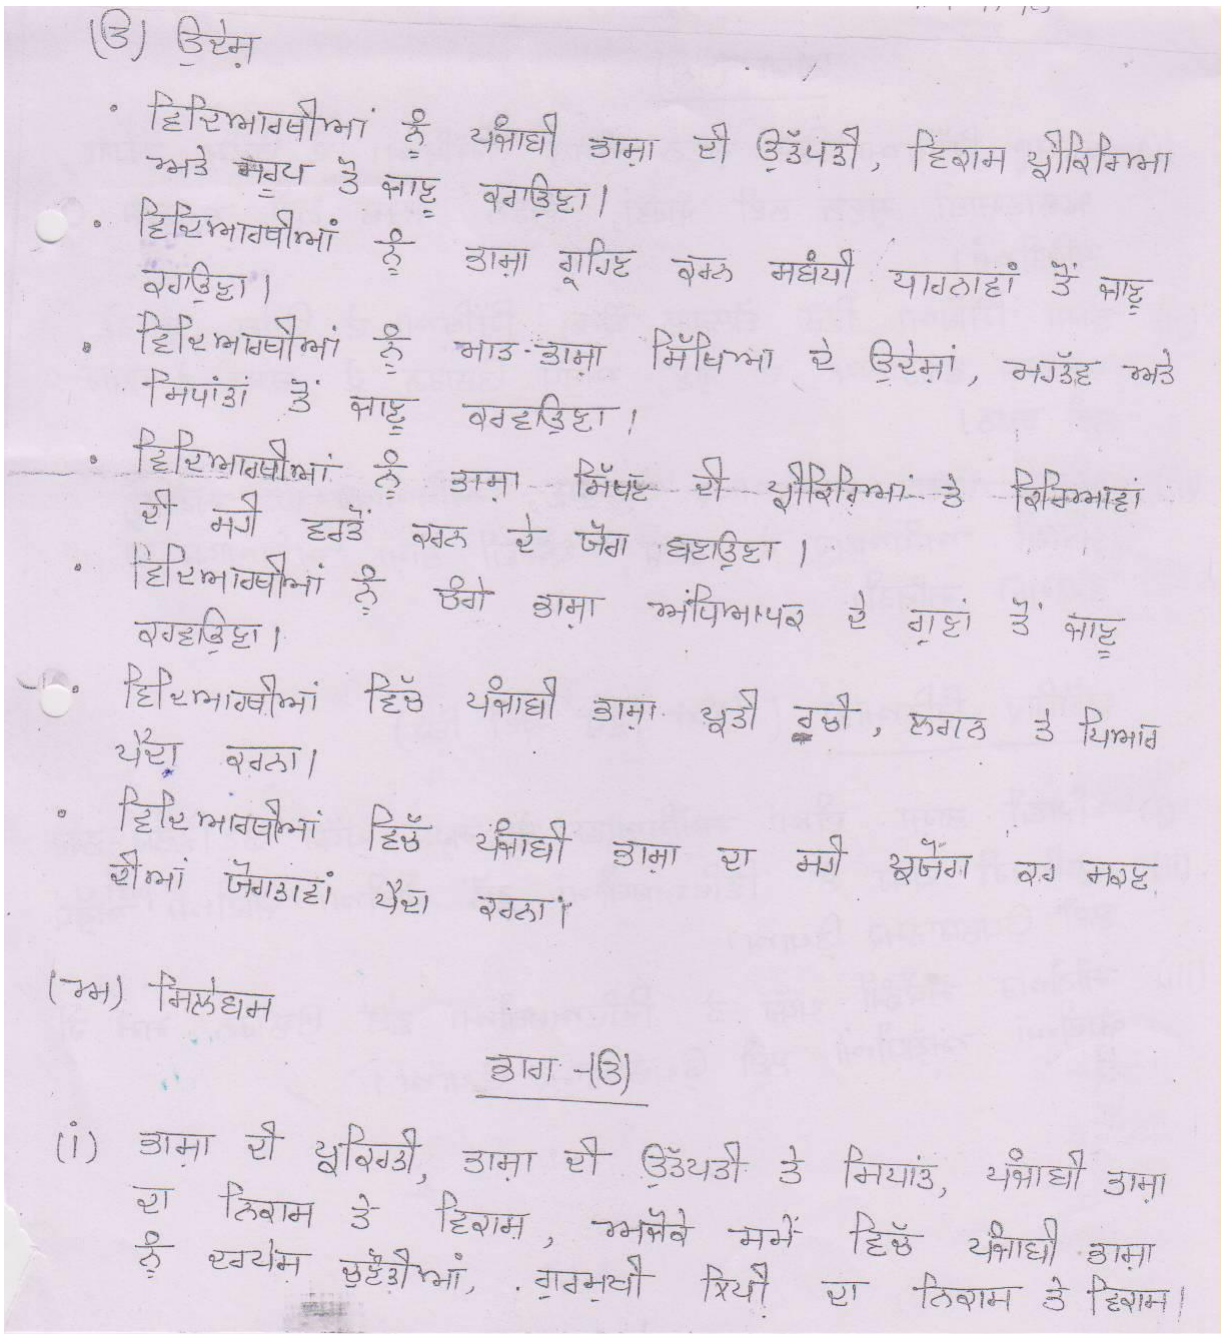 (ੳ) ਉਦੇਸ਼
• ਵਿਦਿਆਰਥੀਆਂ ਨੂੰ ਪੰਜਾਬੀ ਭਾਸ਼ਾ ਦੀ ਉਤੱਪਤੀ, ਵਿਕਾਸ ਪ੍ਰੀਕਿਰਿਆ
ਅਤੇ ਸਰੂਪ ਤੋਂ ਜਾਣੂ ਕਰਾਉਣਾ।
• ਵਿਦਿਆਰਥੀਆਂ ਨੂੰ ਭਾਸ਼ਾ ਗ੍ਰਹਿਣ ਕਰਨ ਸਬੰਧੀ ਧਾਰਨਾਵਾਂ ਤੋਂ ਜਾਣੂ
ਕਰਾਉਣਾ।
• ਵਿਦਿਆਰਥੀਆਂ ਨੂੰ ਮਾਤ-ਭਾਸ਼ਾ ਸਿੱਖਿਆ ਦੇ ਉਦੇਸ਼ਾਂ, ਮਹਤੱਵ ਅਤੇ
ਸਿਧਾਂਤਾਂ ਤੋਂ ਜਾਣੂ ਕਰਵਾਉਣਾ।
• ਵਿਦਿਆਰਥੀਆਂ ਨੂੰ ਭਾਸ਼ਾ ਸਿੱਖਣ ਦੀ ਪ੍ਰੀਕਿਰਿਆ ਤੇ ਕਿਰਿਆਵਾਂ
ਦੀ ਸਹੀ ਵਰਤੋਂ ਕਰਨ ਦੇ ਯੋਗ ਬਣਾਉਣਾ।
• ਵਿਦਿਆਰਥੀਆਂ ਨੂੰ ਚੰਗੇ ਭਾਸ਼ਾ ਅਧਿਆਪਕ ਦੇ ਗੁਣਾਂ ਤੋਂ ਜਾਣੂ
ਕਰਵਾਉਣਾ।
• ਵਿਦਿਆਰਥੀਆਂ ਵਿਚੱ ਪੰਜਾਬੀ ਭਾਸ਼ਾ ਪ੍ਰਤੀ ਰੁਚੀ, ਲਗਨ ਤੇ ਪਿਆਰ
ਪੈਦਾ ਕਰਨਾ।
• ਵਿਦਿਆਰਥੀਆਂ ਵਿਚੱ ਪੰਜਾਬੀ ਭਾਸ਼ਾ ਦਾ ਸਹੀ ਪ੍ਰਯੋਗ ਕਰ ਸਕਣ
ਦੀਆਂ ਯੋਗਤਾਵਾਂ ਪੈਦਾ ਕਰਨਾ।
(ਅ) ਸਿਲੇਬਸ
ਭਾਗ-(ੳ)
(i) ਭਾਸ਼ਾ ਦੀ ਪ੍ਰਕਿਰਤੀ, ਭਾਸ਼ਾ ਦੀ ਉਤੱਪਤੀ ਤੇ ਸਿਧਾਂਤ, ਪੰਜਾਬੀ ਭਾਸ਼ਾ
ਦਾ ਨਿਕਾਸ ਤੇ ਵਿਕਾਸ, ਅਜੋਕੇ ਸਮੇਂ ਵਿਚੱ ਪੰਜਾਬੀ ਭਾਸ਼ਾ
ਨੂੰ ਦਰਪੇਸ਼ ਚੁਣੌਤੀਆਂ, ਗੁਰਮੁਖੀ ਲਿਪੀ ਦਾ ਨਿਕਾਸ ਤੇ ਵਿਕਾਸ।